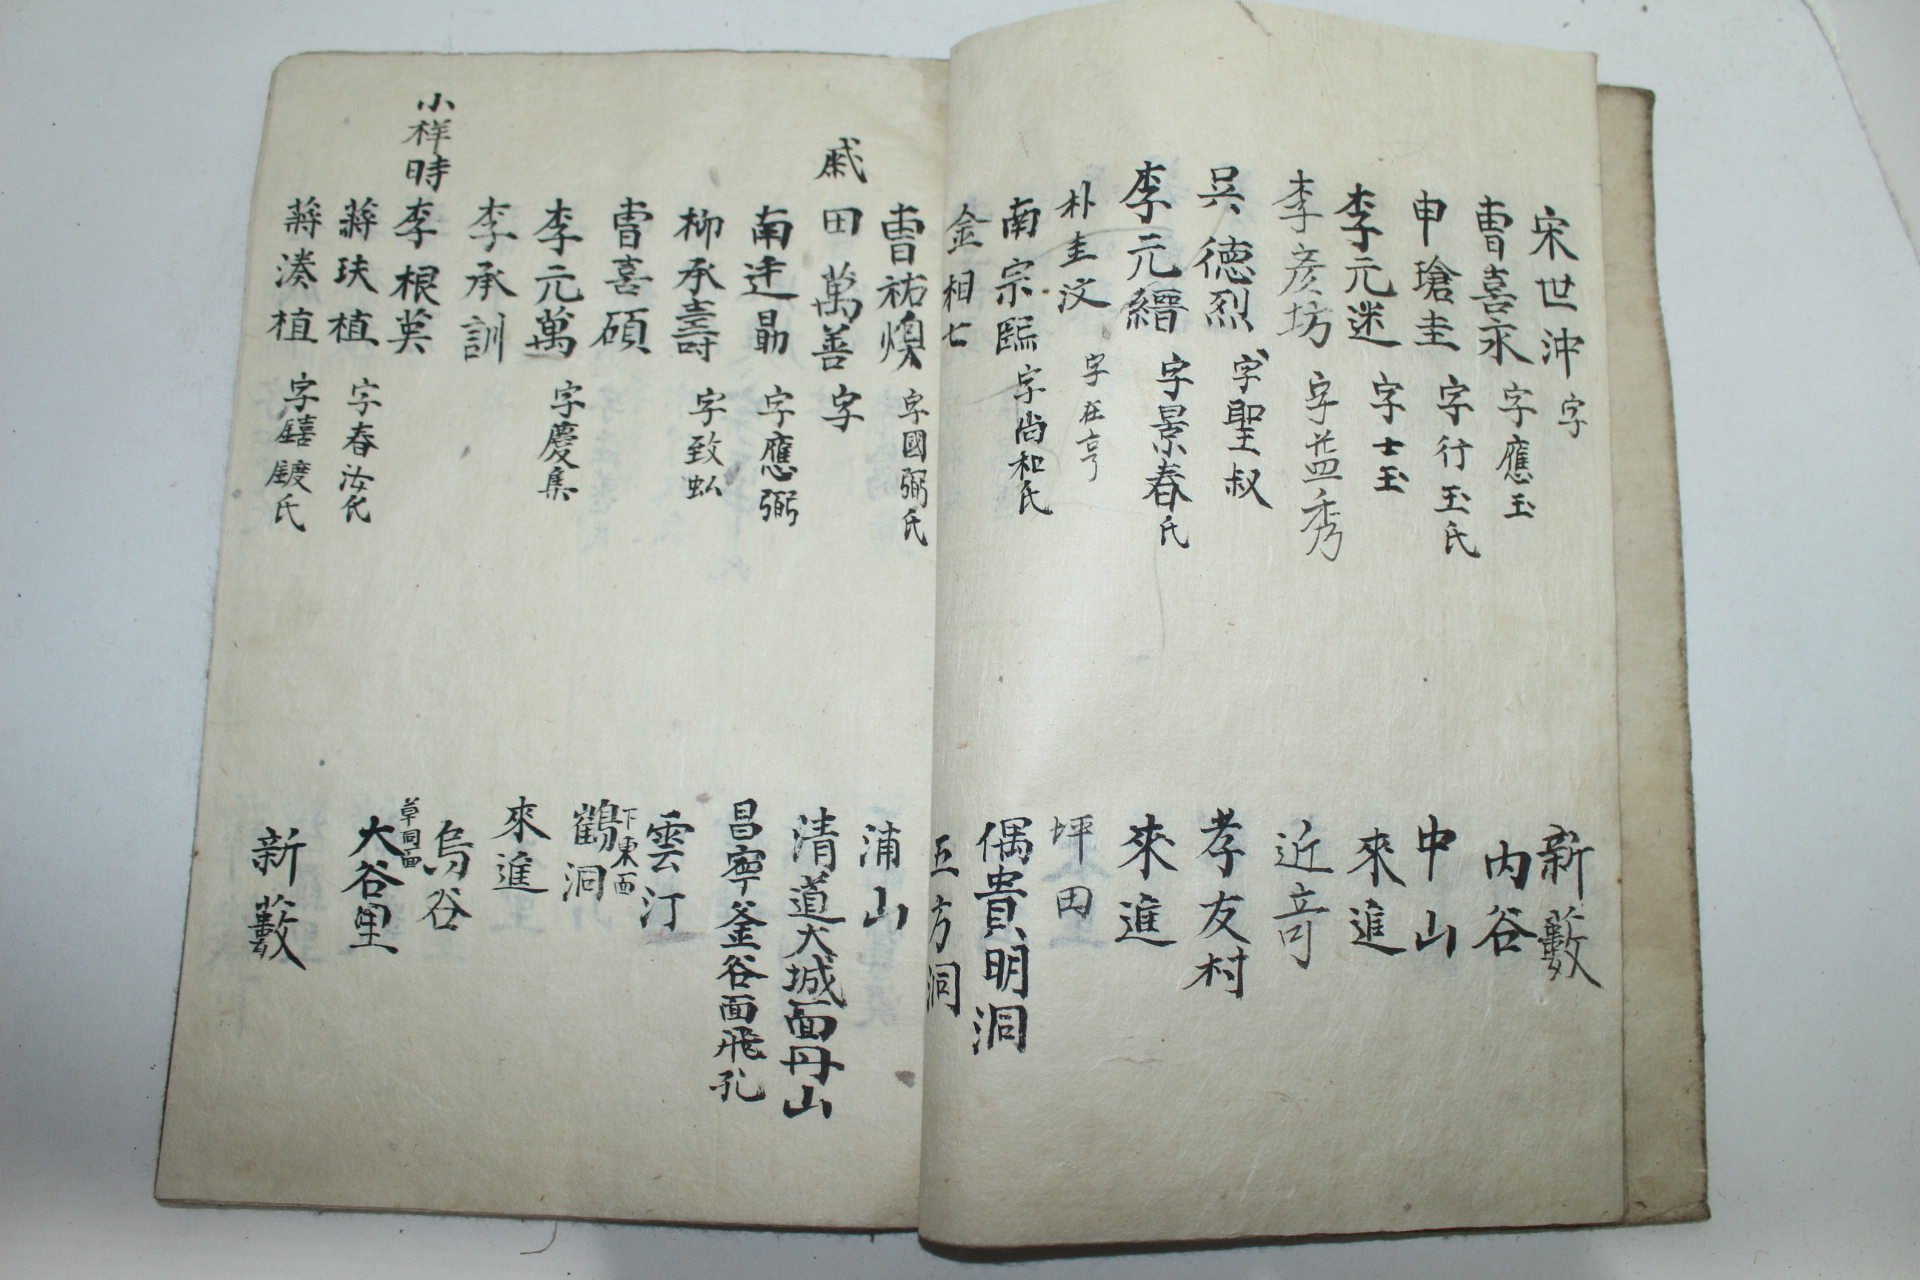 宋世沖 字 新藪
曺喜永 字應玉 內谷
申瑲圭 字行玉氏 中山
李元迷 字士玉 來進
李彦坊 字益秀 近奇
吳德烈 字聖叔 孝友村
李元縉 字景春氏 來進
朴圭汶 字在亨 坪田
南宗熙 字尙和氏 偶貴明洞
金相七 五方洞
曺祐煥 字國弼氏 浦山
戚 田萬善 字 清道大城面丹山
南廷勗 字應弼 昌寧釜谷面飛孔
柳承壽 字致 雲汀
曺喜碩 下東面 鶴洞
李元萬 字慶集 來進
李承訓 烏谷
小祥時 李根英 草同面 大谷里
蔣玞植 字春汝氏
蔣湊植 字 氏 新藪